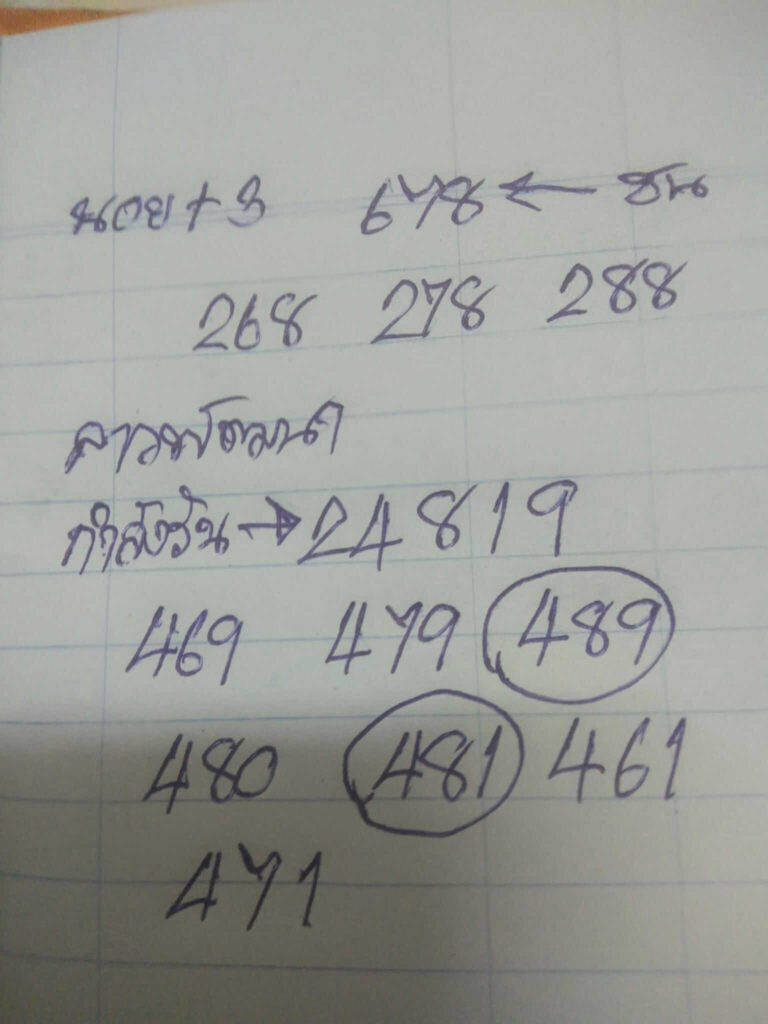 นอย+3 678 ← ชน
268 278 288
ลาวพัฒนา
กำลังวัน → 24819
469 479 489
480 481 461
471